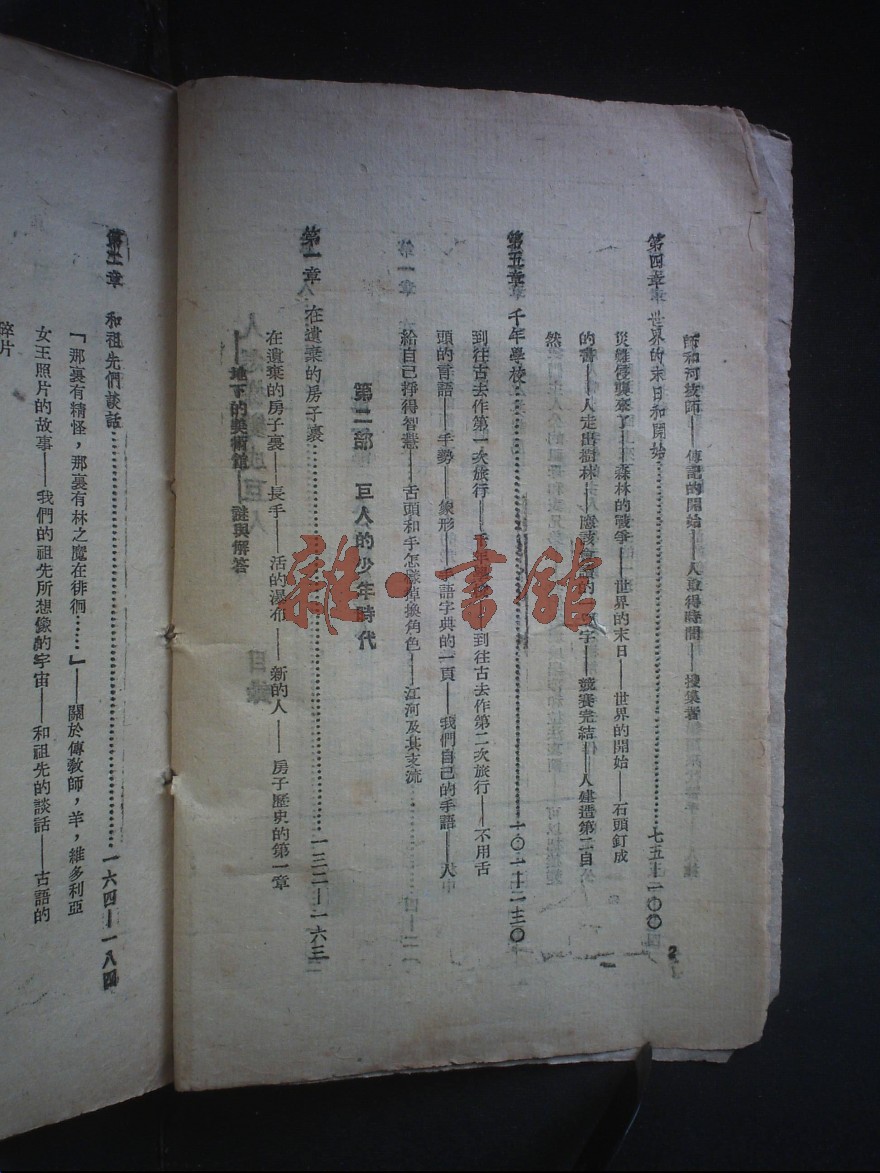 師和河牧師——傳記的開始——人取得時間——搜集者
第四章 世界的末日和開始……七五—一〇〇
災難侵襲來了——森林的戰爭——世界的末日——世界的開始——石頭釘成
的書——人走出樹林——應該會讀的文字——競賽完結——人建造第二自
然
第五章 千年學校……
到往古去作第一次旅行——千年學校——到往古去作第二次旅行——不用舌
頭的言語——手勢——象形 語字典的一頁——我們自己的手語——
給自己掙得智慧——舌頭和手怎樣掉換角色——江河及其支流
第二部 巨人的少年時代
第一章 在遺棄的房子裏……一三二—一六三
在遺棄的房子裏——長手——活的瀑布——新的人——房子歷史的第一章
——地下的美術館——謎與解答
2
第二章 和祖先們談話……一六四—一八四
「那裏有精怪，那裏有林之魔在徘徊……」——關於傳教師，羊，維多利亞
女王照片的故事——我們的祖先所想像的宇宙——和祖先的談話——古語的
碎片
雜·書館